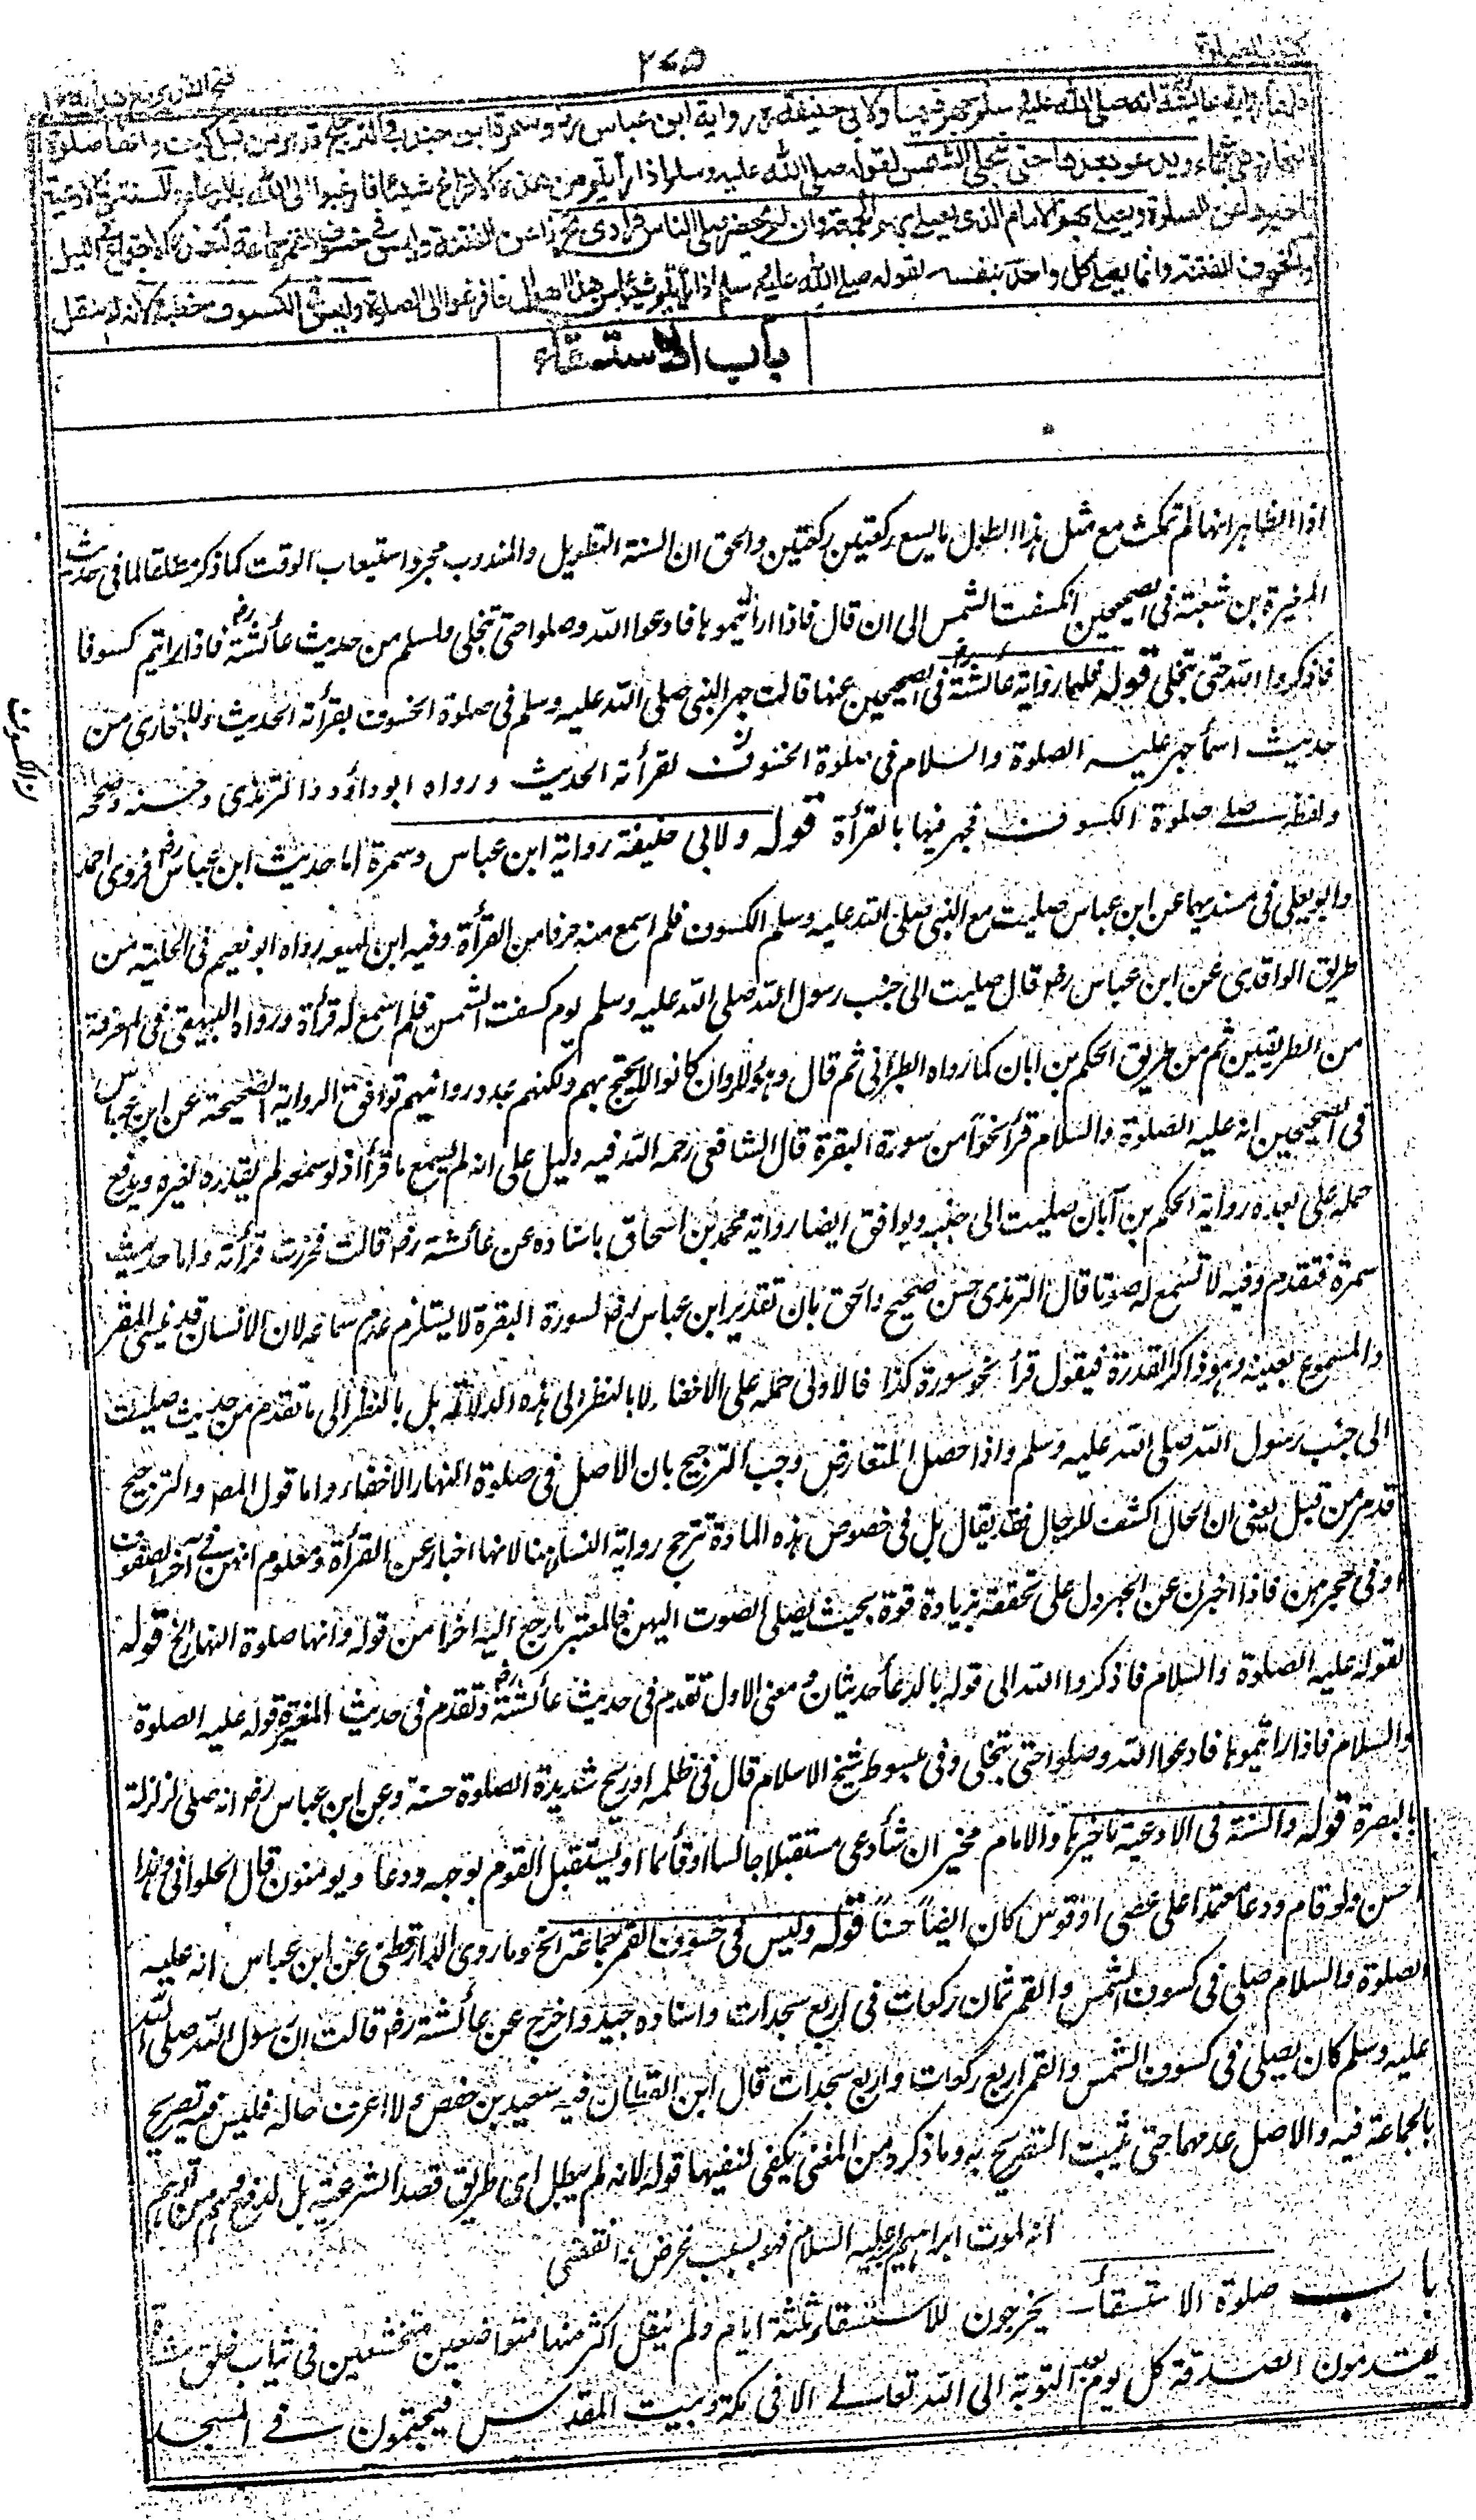 ٢٧٥
كتاب الصلوة
واما رواية عائشة انه صلى الله عليه وسلم جهر فيها ولابي حنيفة رواية ابن عباس وسمرة ابن جندب والترجيح قد مر من قبل كيف وانها صلوة
النهار وهي عجماء ويدعو بعدها حتى تنجلي الشمس لقوله صلى الله عليه وسلم اذا رأيتم من هذه الافزاع شيئا فارغبوا الى الله بالدعاء والسنة في الادعية
تاخيرها عن الصلوة ويصلي بهم الامام الذي يصلي بهم الجمعة وان لم يحضر صلى الناس فرادى تحرزا عن الفتنة وليس في خسوف القمر جماعة لتعذر الاجتماع في الليل
او لخوف الفتنة وانما يصلي كل واحد بنفسه لقوله صلى الله عليه وسلم اذا رأيتم شيئا من هذه الاهوال فافزعوا الى الصلوة وليس في الكسوف خطبة لانه لم ينقل
باب الاستسقاء
اذا الظاهر انها لم تمكث مع مثل هذا الطول ما يسع ركعتين ركعتين والحق ان السنة التطويل والمندوب مجرد استيعاب الوقت كما ذكر مطلقا لما في حديث
المغيرة بن شعبة في الصحيحين انكسفت الشمس الى ان قال فاذا رأيتموها فادعوا الله وصلوا حتى تنجلي ولمسلم من حديث عائشة رض فاذا رايتم كسوفا
فاذكروا الله حتى تنجلي قوله فلهما رواية عائشة رض في الصحيحين عنها قالت جهر النبي صلى الله عليه وسلم في صلوة الخسوف بقرأته الحديث وللبخاري من
حديث اسمأ جهر عليه الصلوة والسلام في صلوة الخسوف لقرأته الحديث ورواه ابو داؤد والترمذي وحسنه وصححه
ولفظه صلى صلوة الكسوف فجهر فيها بالقرأة قوله ولابي حنيفة رواية ابن عباس وسمرة اما حديث ابن عباس رض فروى احمد
وابو يعلى في مسنديهما عن ابن عباس صليت مع النبي صلى الله عليه وسلم الكسوف فلم اسمع منه حرفا من القرأة وفيه ابن لهيعه رواه ابو نعيم في الحلية من
طريق الواقدي عن ابن عباس رض قال صليت الى جنب رسول الله صلى الله عليه وسلم يوم كسفت الشمس فلم اسمع له قرأة ورواه البيهقي في المعرفة
من الطريقين ثم من طريق الحكم بن ابان كما رواه الطبراني ثم قال وهؤلاء وان كانوا لا يحتج بهم ولكنهم عدد روايتهم توافق الرواية الصحيحة عن ابن عباس
في الصحيحين انه عليه الصلوة والسلام قرأ نحوا من سورة البقرة قال الشافعي رحمه الله فيه دليل على انه لم يسمع ما قرأ اذ لو سمعه لم يقدره لغيره ويدفع
حمله على بعده رواية الحكم بن آبان صليت الى جنبه ويوافق ايضا رواية محمد بن اسحاق باسناده عن عائشة رض قالت فحزرت قرأته واما حديث
سمرة فتقدم وفيه لا نسمع له صوتا قال الترمذي حسن صحيح والحق بان تقدير ابن عباس رض لسورة البقرة لا يستلزم عدم سماعه لان الانسان قد ينسى المقر
والمسموع بعينه وهو ذاكر لقدره فيقول قرأ نحو سورة كذا فالاولى حمله على الاخفاء لا بالنظر الى هذه الدلالة بل بالنظر الى ما تقدم من حديث صليت
الى جنب رسول الله صلى الله عليه وسلم واذا حصل المتعارض وجب الترجيح بان الاصل في صلوة النهار الاخفاء واما قول المص والترجيح
قد مر من قبل يعني ان الحال اكشف للرجال فقد يقال بل في خصوص هذه المادة ترجح رواية النساء هنا لانها اخبار عن القرأة ومعلوم انهن في آخر الصفوف
او في حجرهن فاذا اخبرن عن الجهر دل على تحققه بزيادة قوة بحيث يصل الصوت اليهن فالمعتبر ما رجع اليه اخرا من قوله وانها صلوة النهار الخ قوله
لقوله عليه الصلوة والسلام فاذكروا الله الى قوله بالدعأ حديثان ومعنى الاول تقدم في حديث عائشة رض وتقدم في حديث المغيرة قوله عليه الصلوة
والسلام فاذا رايتموها فادعوا الله وصلوا حتى تنجلي وفي مبسوط شيخ الاسلام قال في ظلمه او ريح شديدة الصلوة حسنة وعن ابن عباس رض انه صلى لزلزلة
بالبصرة قوله والسنة في الادعية تاخيرها والامام مخير ان شأ دعى مستقبلا جالسا او قائما او يستقبل القوم بوجهه ودعا ويومنون قال الحلواني وهذا
احسن ولو قام ودعا معتمدا على عصى او قوس كان ايضا حسنا قوله وليس في خسوف القمر جماعة الخ وما روى الدارقطني عن ابن عباس انه عليه
الصلوة والسلام صلى في كسوف الشمس والقمر ثمان ركعات في اربع سجدات واسناده جيد واخرج عن عائشة رض قالت ان رسول الله صلى الله
عليه وسلم كان يصلي في كسوف الشمس والقمر اربع ركعات واربع سجدات قال ابن القطان فيه سعيد بن حفص ولا اعرف حاله فليس فيه تصريح
بالجماعة فيه والاصل عدمها حتى يثبت التصريح به وما ذكره من المعنى يكفي لنفيها قوله لانه لم ينقل اي طريق قصد الشرعية بل لدفع وهم من توهم
انه لموت ابراهيم عليه السلام فهو بسبب عرض وانقضى
باب صلوة الاستسقأ يخرجون للاستسقاء ثلثة ايام ولم ينقل اكثر منها متواضعين متخشعين في ثياب خلق مشاة
يقدمون الصدقة كل يوم بعد التوبة الى الله تعالى الا في مكة وبيت المقدس فيجتمعون في المسجد